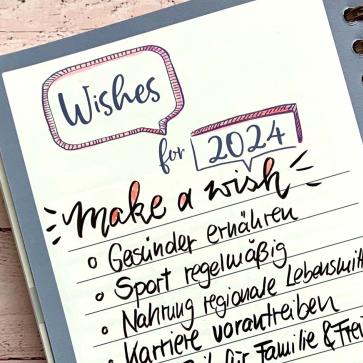 Wishes
for 2024
make a wish
Gesünder ernähren
Sport regelmäßig
Nahrung regionale
Karriere vorantreiben
für Familie &